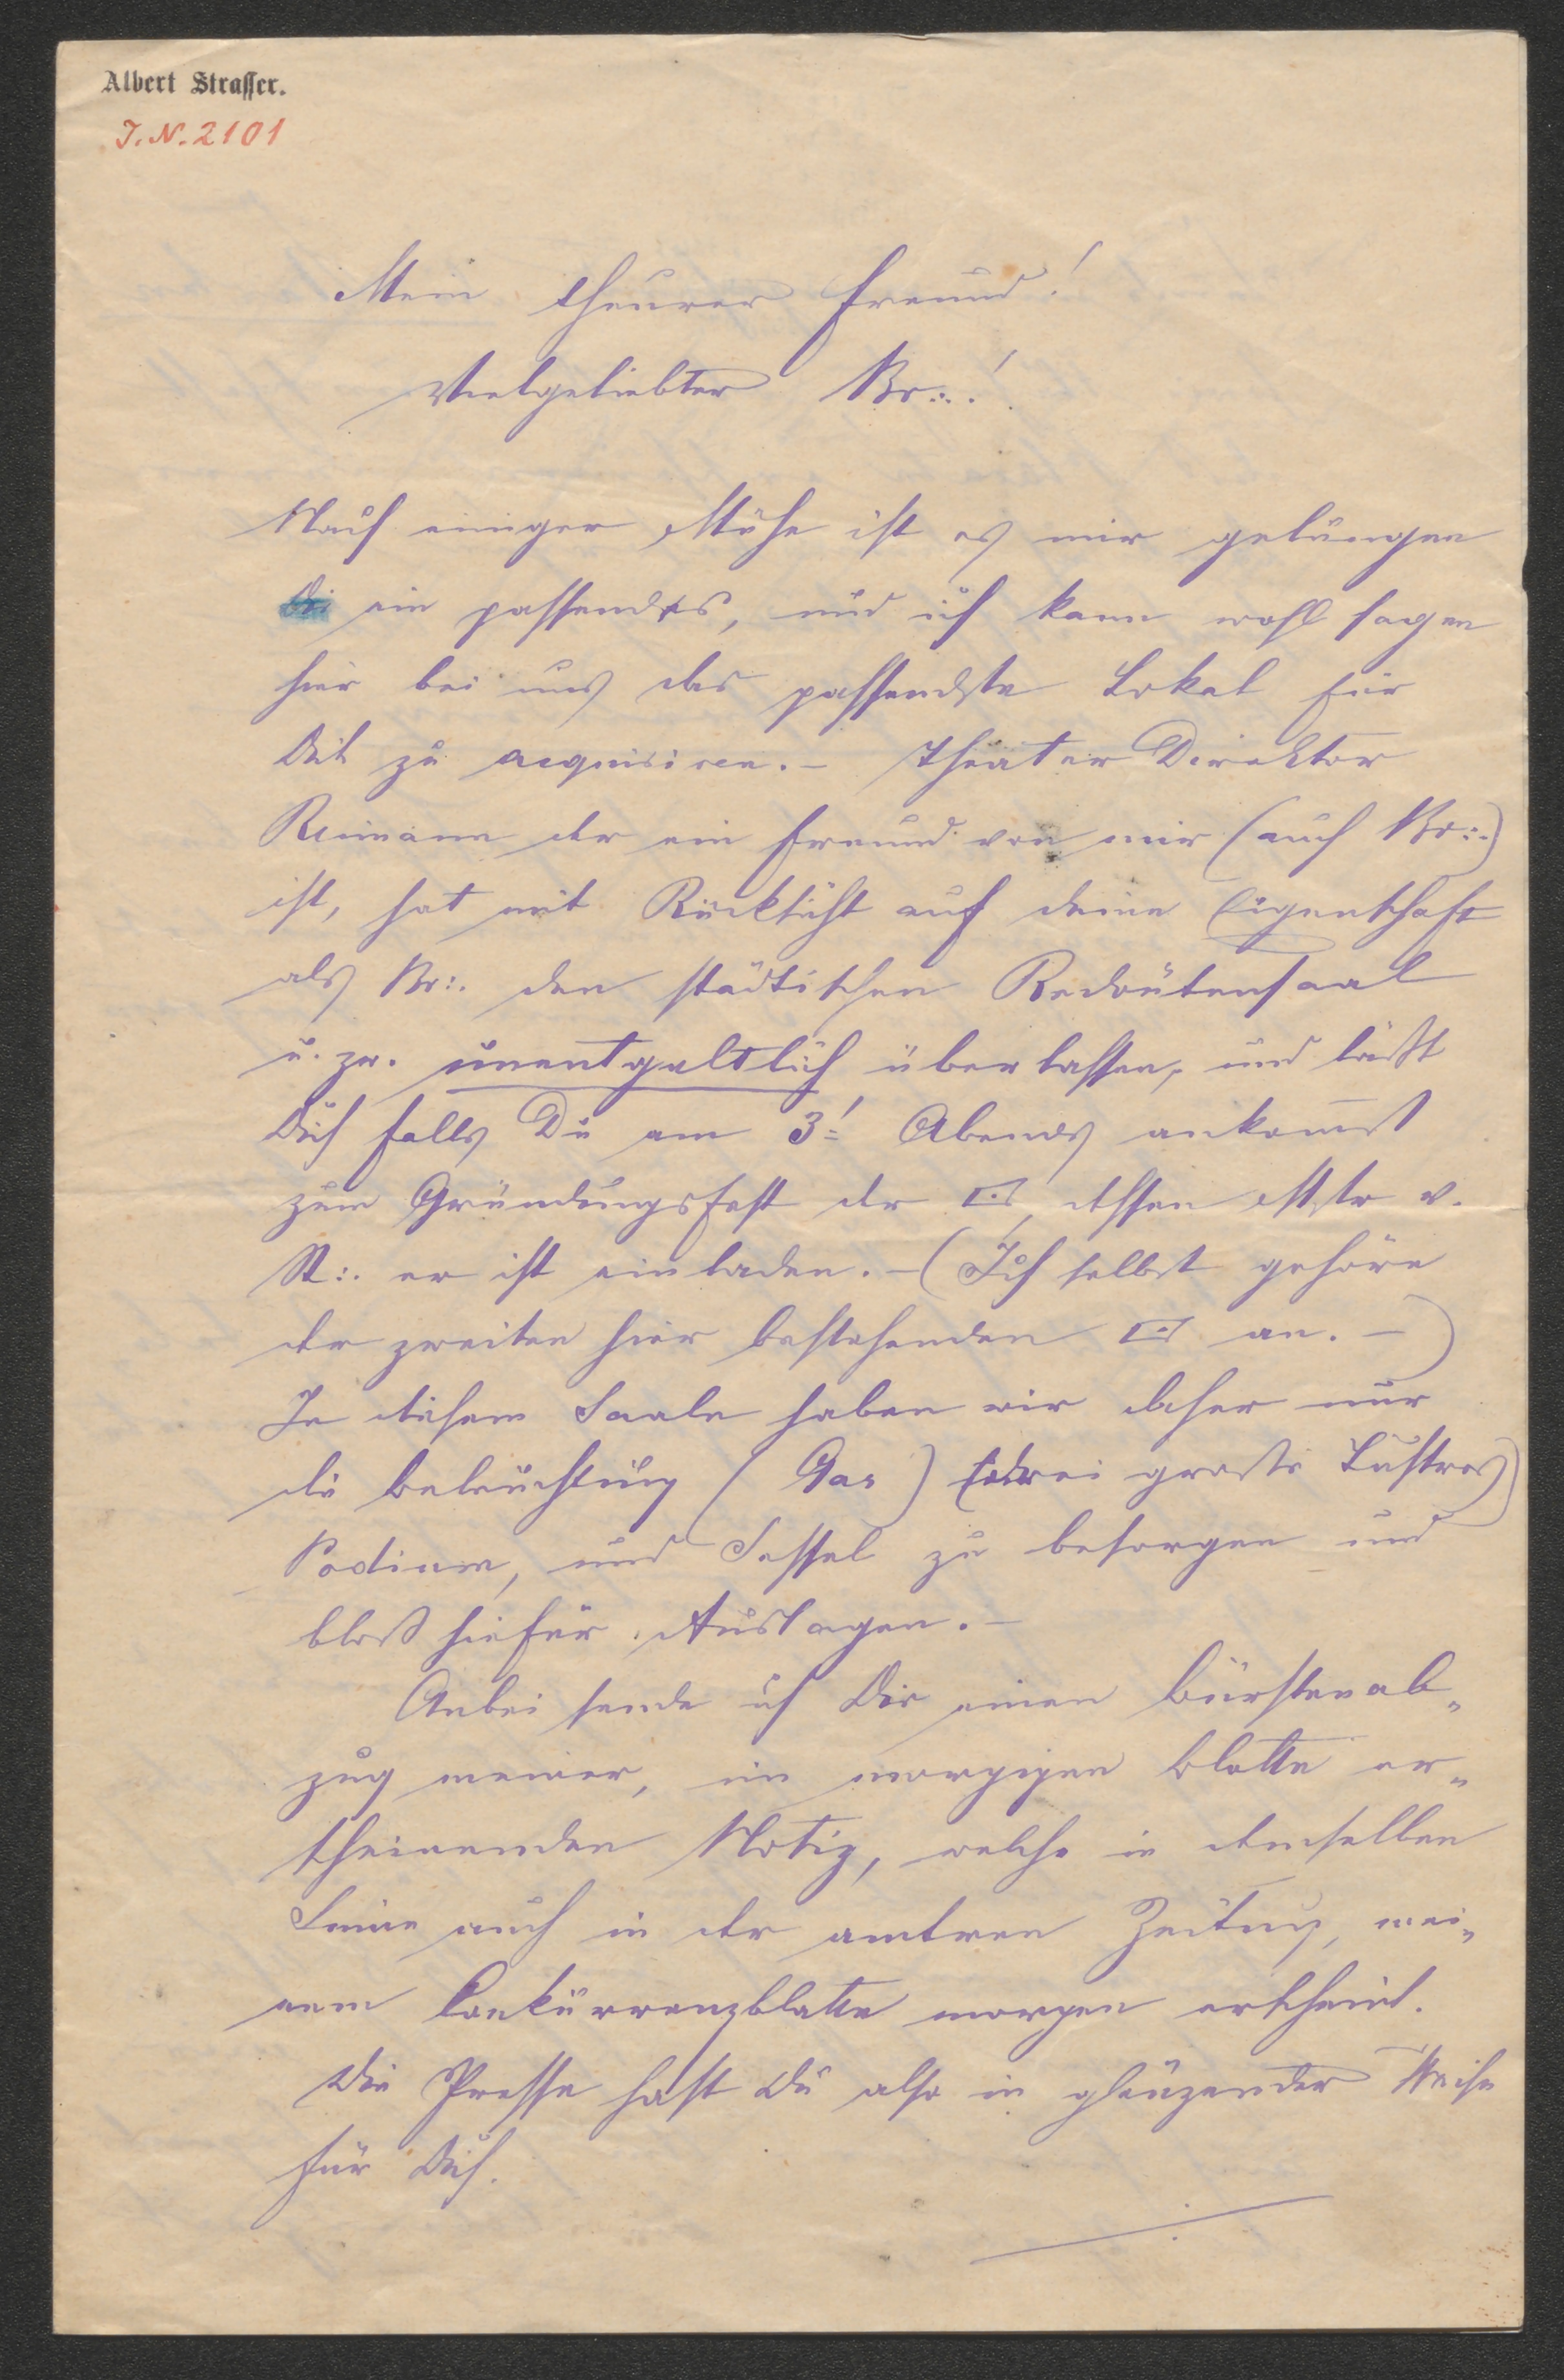 Albert Strasser.
J. N. 2101
Mein theurer Freund!
Vielgeliebter Br∴!
Nach einiger Mühe ist es mir gelungen
ein passendes, und ich kann wohl sagen
hier bei uns das passendste Lokal für
Dich zu acquiriren. – Theater Direktor
Raimann der ein Freund von mir (auch Br∴)
ist, hat mit Rücksicht auf deine Eigenschaft
als Br∴ den städtischen Redoutensaal
u. zw. unentgeltlich überlassen, und läßt
Dich falls Du am 3! Abends ankommst
zum Gründungsfest der ⊡, dessen Mstr v.
St∴ er ist einladen. – (Ich selbst gehöre
der zweiten hier bestehenden ⊡ an. –)
In diesem Saale haben wir daher nur
die Beleuchtung (Gas) (drei große Lustres)
Podium, und Sessel zu besorgen und
bloß hiefür Auslagen. –
Anbei sende ich Dir einen Bürstenab„
zug meiner, im morgigen Blatte er„
scheinenden Notiz, welche in demselben
Sinne auch in der anderen Zeitung, mei„
nem Conkurrenzblatte morgen erscheint.
Die Presse hast Du also in glänzender Weise
für Dich.